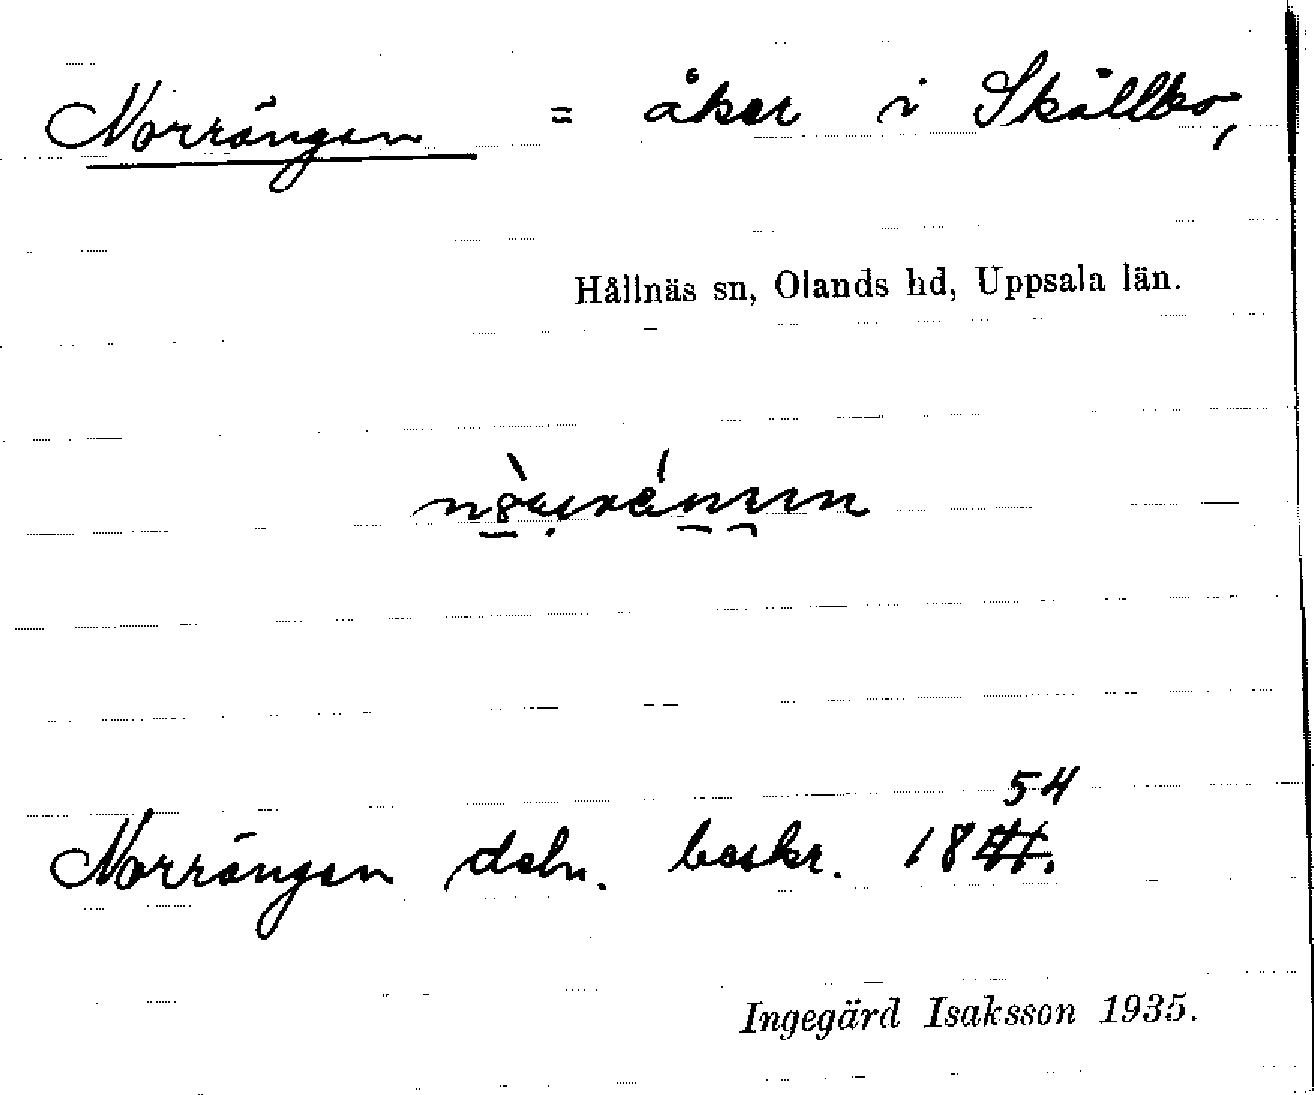 Norrängen = åker i Skällbo,
Hållnäs sn, Olands hd, Uppsala län.
54
Norrängen deln. beskr. 18
Ingegärd Isaksson 1935.